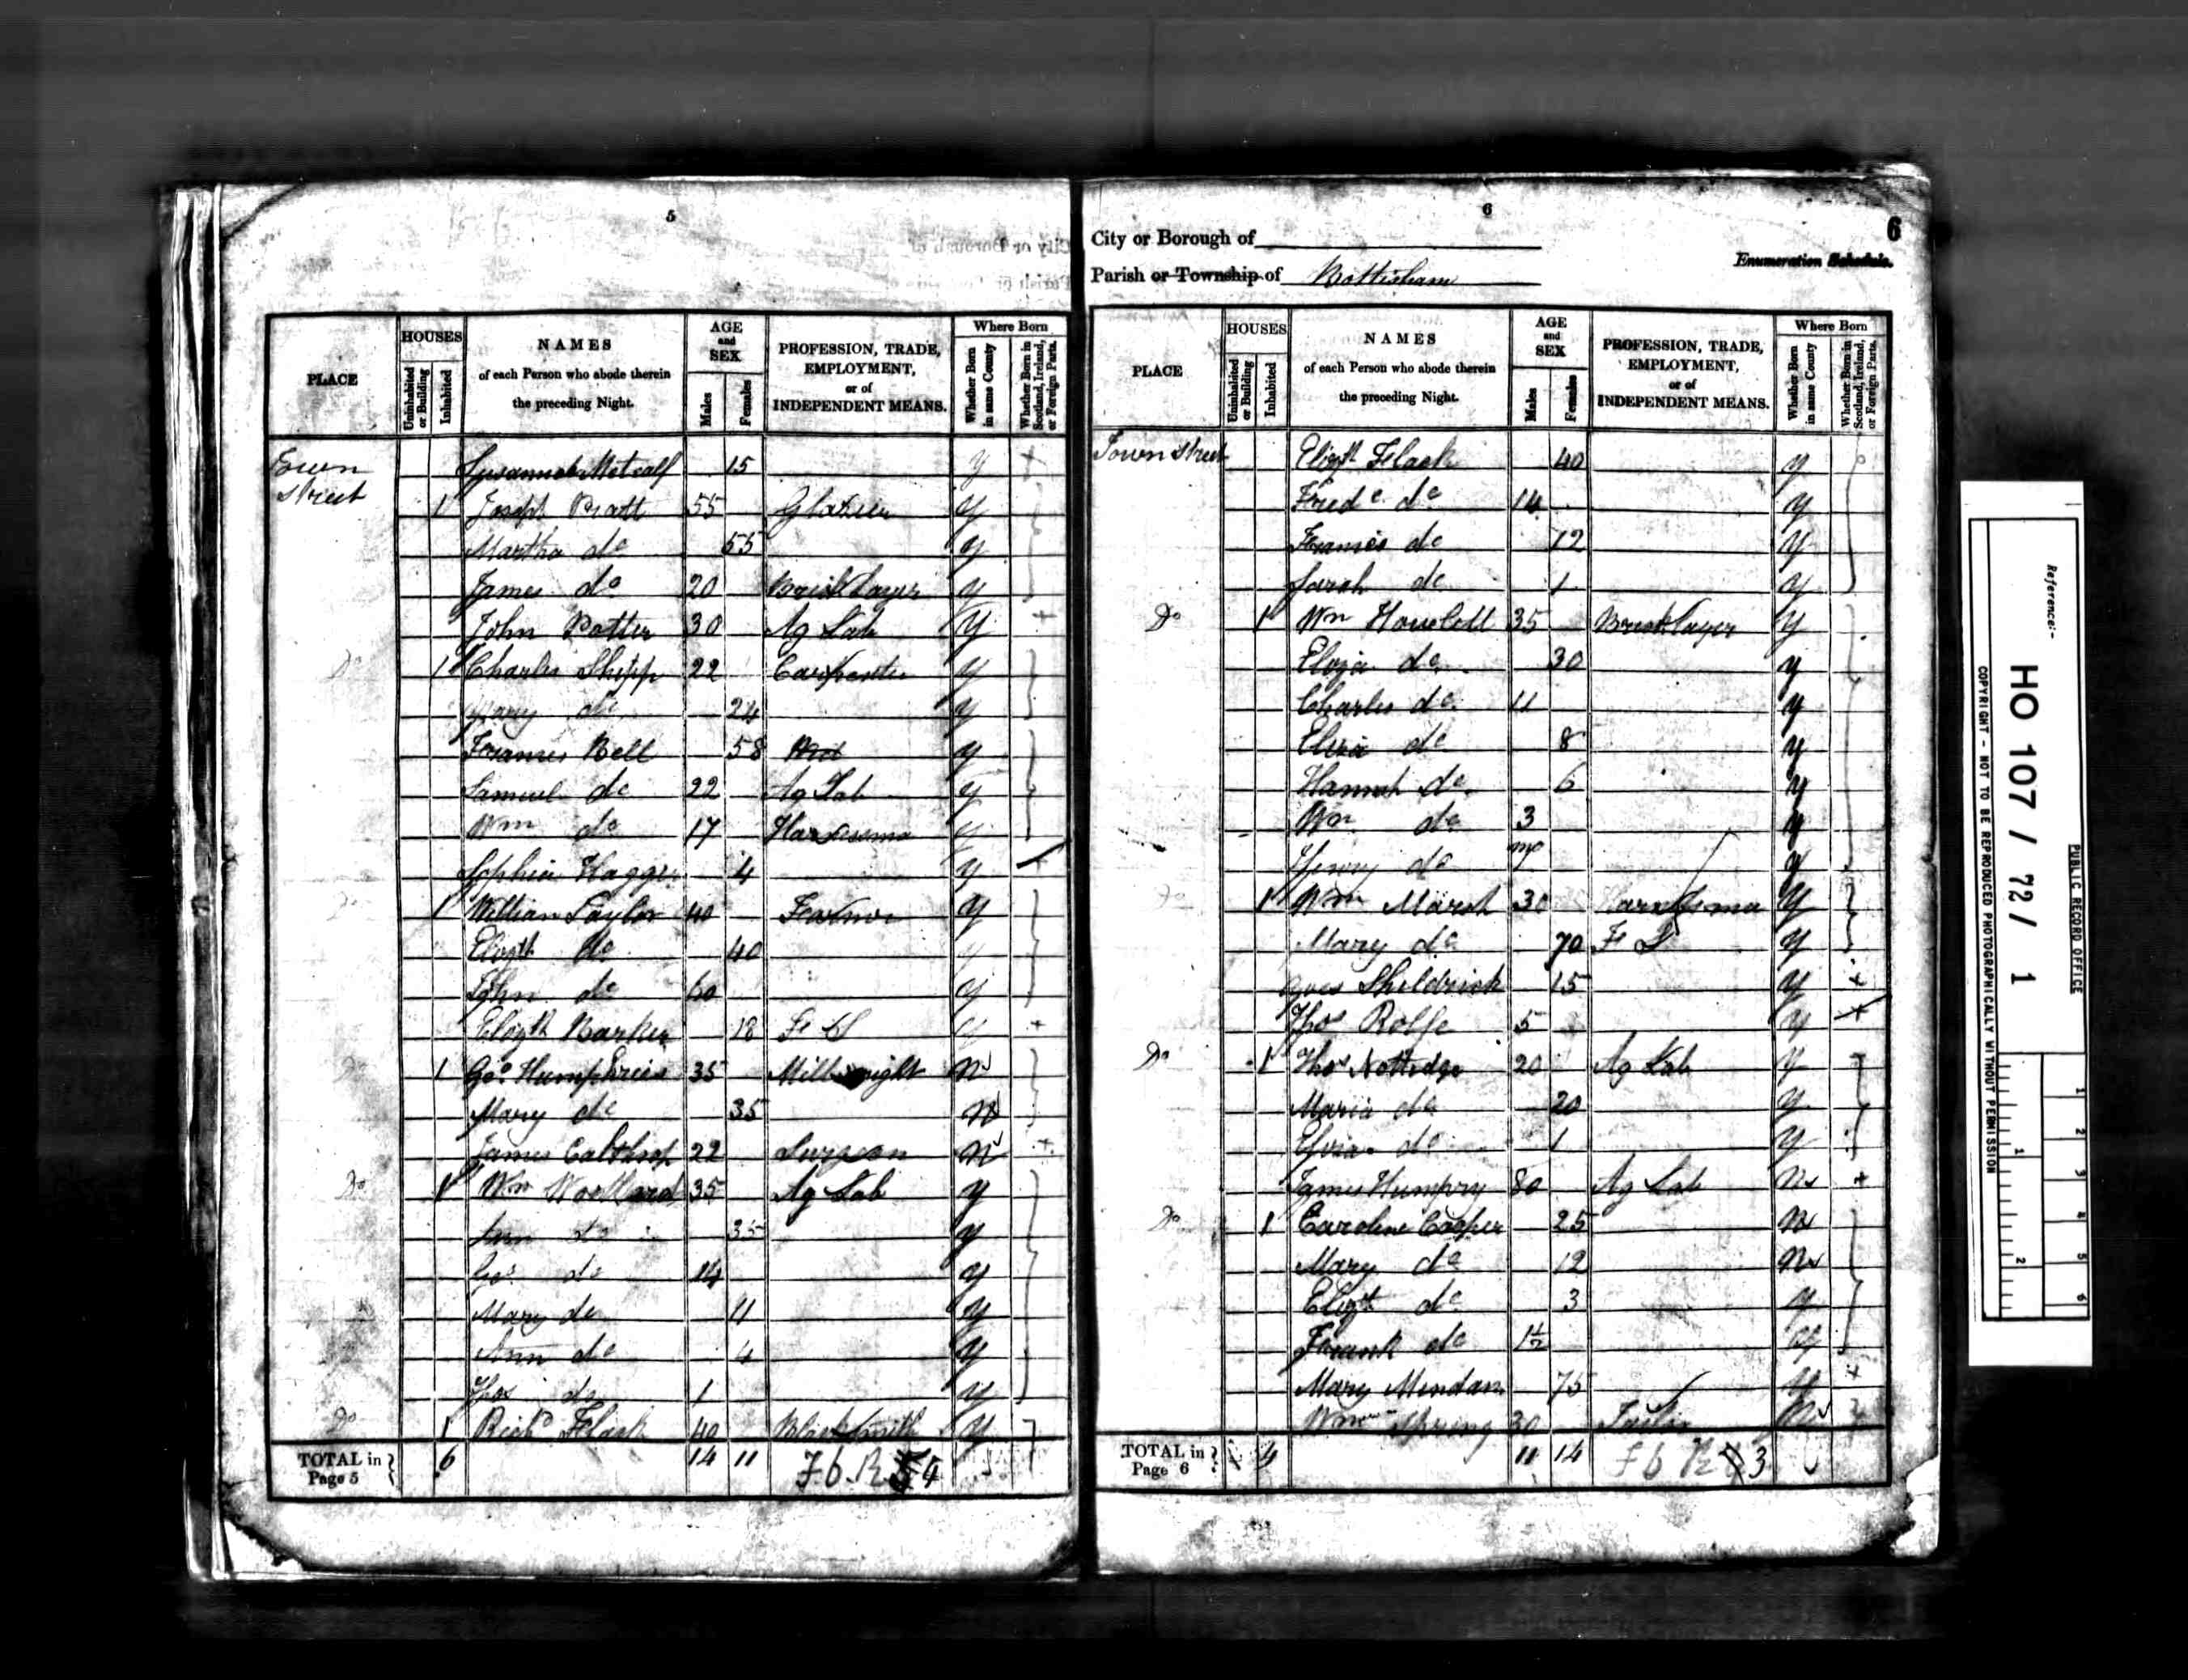 5
HOUSES
PLACE
Uninhabited or Building
Inhabited
NAMES
of each Person who abode therein
the preceding Night.
AGE
and
SEX
Males
Females
PROFESSION, TRADE,
EMPLOYMENT,
or of
INDEPENDENT MEANS.
Where Born
Whether Born in same County
Whether Born in Scotland, Ireland, or Foreign Parts.
Town Susannah Metcalf 15 y
Street 1 Joseph Pratt 55 Glazier y
Martha do 55 y
James do 20 Bricklayer y
John Potter 30 Ag Lab y
Do 1 Charles Shipp 22 Carpenter y
Mary do 24 y
Frances Bell 58 y
Samuel do 22 Ag Lab y
Wm do 17 y
Sophia 4 y
Do 1 William Taylor 40 Farmer y
Elizth do 40 y
John do 60 y
Elizth Barker 18 F S y
Do 1 Geo. Humphries 35 Millwright N
Mary do 35 N
James Calthrop 22 Surgeon N
Do 1 Wm Woollard 35 Ag Lab y
Ann do 35 y
Geo. do 14 y
Mary do 11 y
Ann do 4 y
Thos do 1 y
Do 1 Richd Flack 40 Blacksmith y
TOTAL in Page 5 } 6 14 11 4
6
6
City or Borough of
Parish or Township of Bottisham
Enumeration Schedule.
HOUSES
PLACE
Uninhabited or Building
Inhabited
NAMES
of each Person who abode therein
the preceding Night.
AGE
and
SEX
Males
Females
PROFESSION, TRADE,
EMPLOYMENT,
or of
INDEPENDENT MEANS.
Where Born
Whether Born in same County
Whether Born in Scotland, Ireland, or Foreign Parts.
Town Street Elizth Flack 40 y
Fredc do 14 y
Frances do 12 y
Sarah do 1 y
Do 1 Wm 35 Bricklayer y
Eliza do 30 y
Charles do 11 y
Eliza do 8 y
Hannah do 6 y
Wm do 3 y
Henry do y
Do 1 Wm Marsh 30 y
Mary do 70 F S y
Sheldrick 15 y
Thos Rolfe 5 y
Do 1 Thos Nottedge 20 Ag Lab y
Maria do 20 y
do 1 y
James Humpry 80 Ag Lab N
Do 1 Caroline Cooper 25 N
Mary do 12 N
Elizt do 3 y
Frank do 1½ y
Mary 75 y
Wm Spring 30 N
TOTAL in Page 6 } 4 11 14 3
Reference:-
HO 107 / 72 / 1
PUBLIC RECORD OFFICE
COPYRIGHT - NOT TO BE REPRODUCED PHOTOGRAPHICALLY WITHOUT PERMISSION
1
2
3
4
5
6
1
2